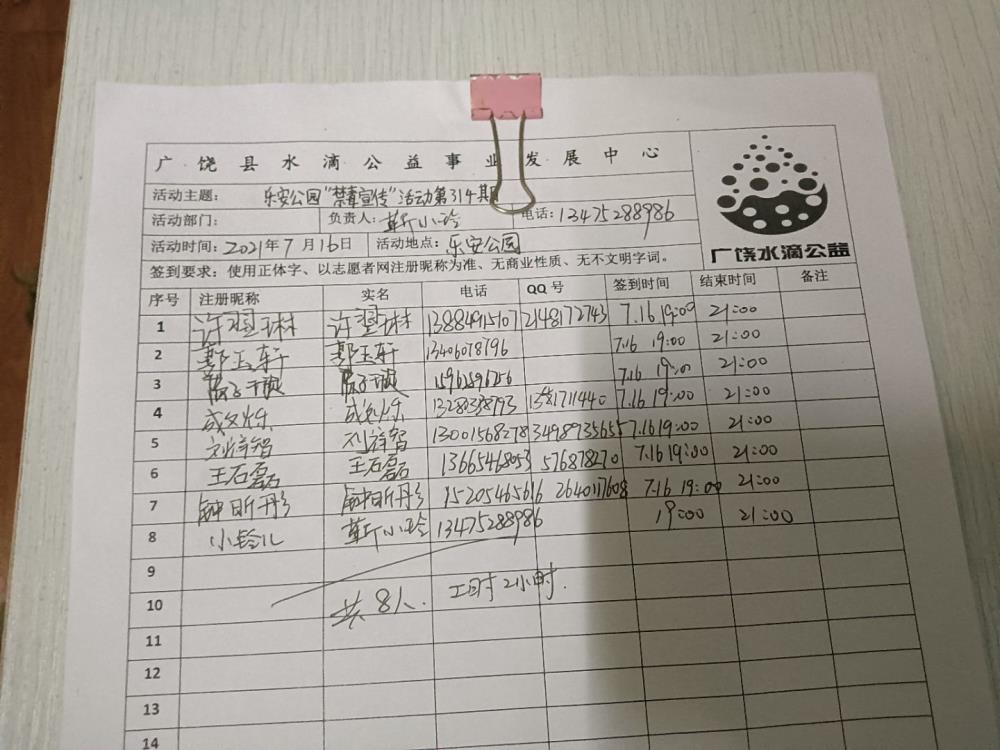 广饶县水滴公益事业发展中心
活动主题: 乐安公园"禁毒宣传"活动第314期
活动部门: 负责人: 靳小玲 电话: 13475288986
活动时间: 2021年7月16日 活动地点: 乐安公园
广饶水滴公益
签到要求: 使用正体字、以志愿者网注册昵称为准、无商业性质、无不文明字词。
序号 注册昵称 实名 电话 QQ号 签到时间 结束时间 备注
1 许翌琳 许翌琳 13884915107 2148172743 7.16 19:00 21:00
2 郭玉轩 郭玉轩 13406078196 7.16 19:00 21:00
3 7.16 19:00 21:00
4 1381711440 7.16 19:00 21:00
5 刘祥智 刘祥智 13001568278 3498935655 7.16 19:00 21:00
6 王石磊 王石磊 13665468053 576878270 7.16 19:00 21:00
7 钟昕彤 钟昕彤 15205465616 2640117608 7.16 19:00 21:00
8 小铃儿 靳小玲 13475288986 19:00 21:00
9
10 共8人. 工时2小时.
11
12
13
14